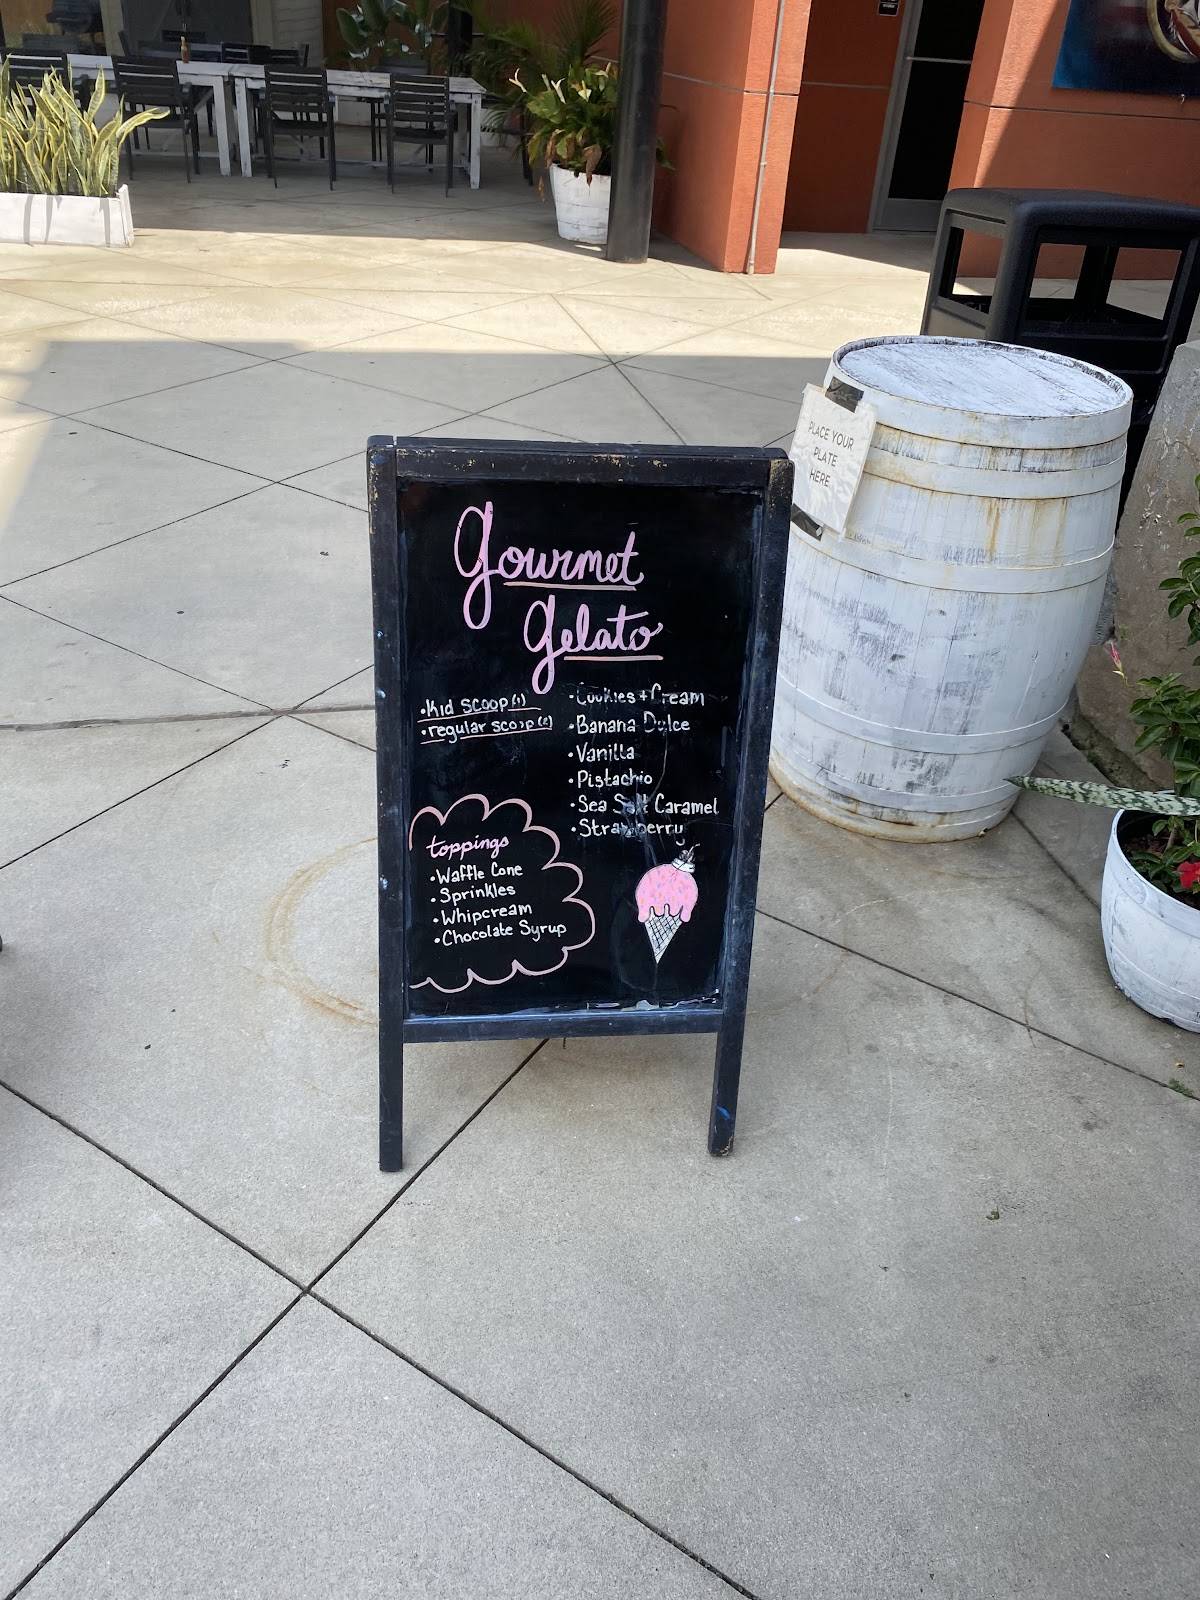 gourmet
gelato
•Kid scoop(1)
•regular scoop(2)
•Cookies+Cream
•Banana Dulce
•Vanilla
•Pistachio
•Sea Salt Caramel
•Strawberry
toppings
•Waffle Cone
•Sprinkles
•Whipcream
•Chocolate Syrup
PLACE YOUR
PLATE
HERE